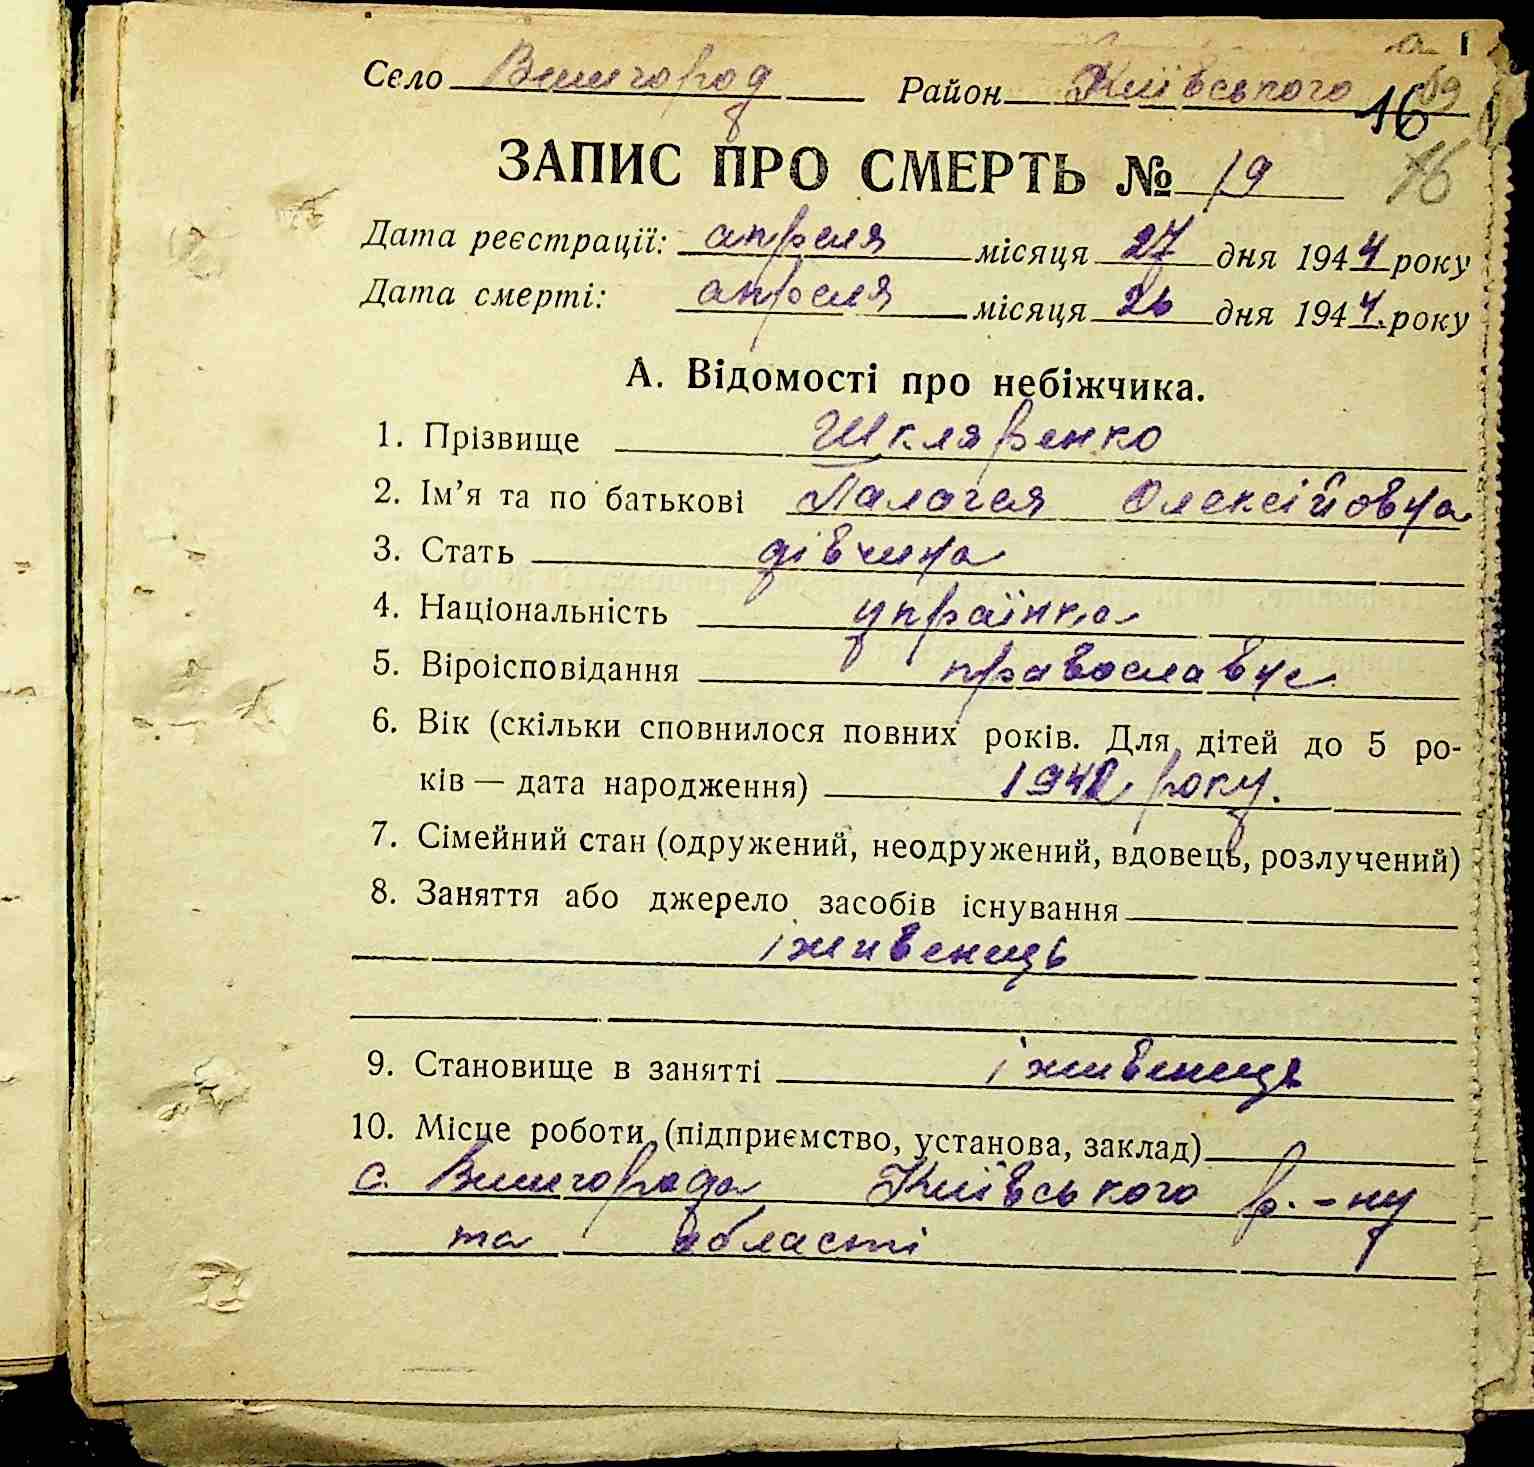 Село Вишгород Район Київського
16
ЗАПИС ПРО СМЕРТЬ № 19 16
Дата реєстрації: апреля місяця 27 дня 1944 року
Дата смерті: апреля місяця 26 дня 1944 року
А. Відомості про небіжчика.
1. Прізвище Шкляренко
2. Ім'я та по батькові Палагея Олексійовна
3. Стать дівчина
4. Національність українка
5. Віроісповідання православне
6. Вік (скільки сповнилося повних років. Для дітей до 5 ро-
ків — дата народження) 1942 року.
7. Сімейний стан (одружений, неодружений, вдовець, розлучений)
8. Заняття або джерело засобів існування
іживенець
9. Становище в занятті іживенець
10. Місце роботи (підприємство, установа, заклад)
с. Вишгорода Київського р.-ну
та області